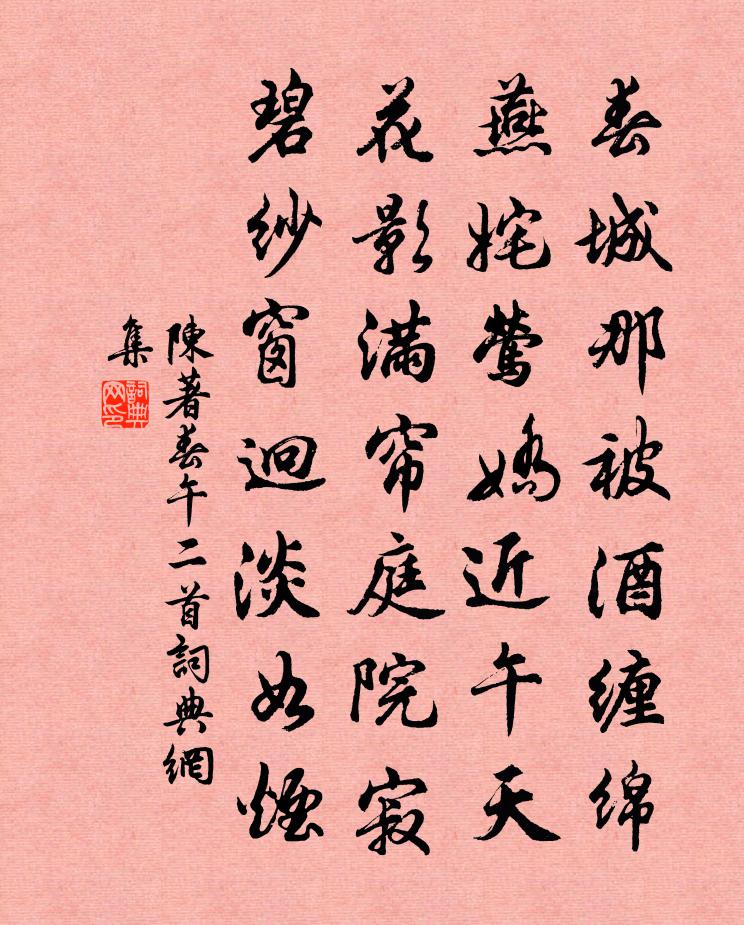 春城那被酒缠綿
燕姹鶯嬌近午天
花影满帘庭院寂
碧纱窗迥淡如煙
陳著春午二首詞典網
集
詞典網印